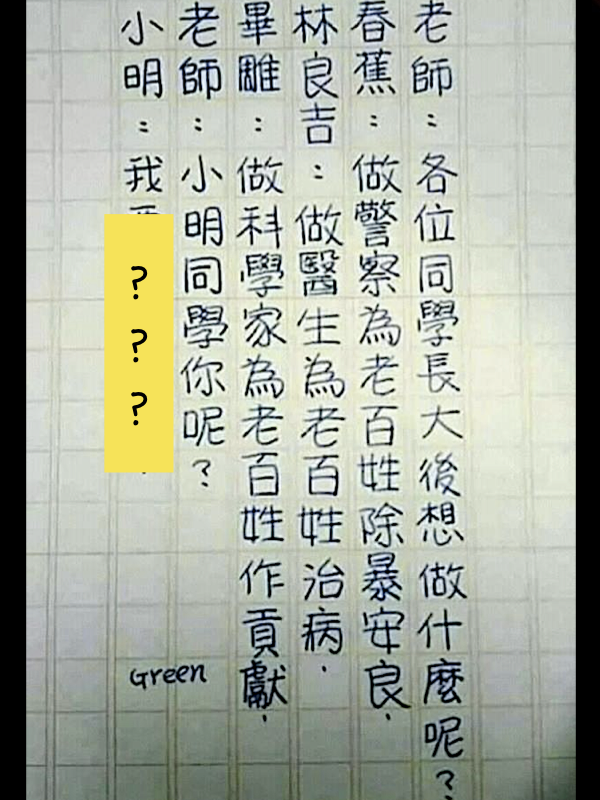 老師：各位同學長大後想做什麼呢？
春蕉：做警察為老百姓除暴安良．
林良吉：做醫生為老百姓治病．
畢雕：做科學家為老百姓作貢獻．
老師：小明同學你呢？
小明：我
？？？
Green